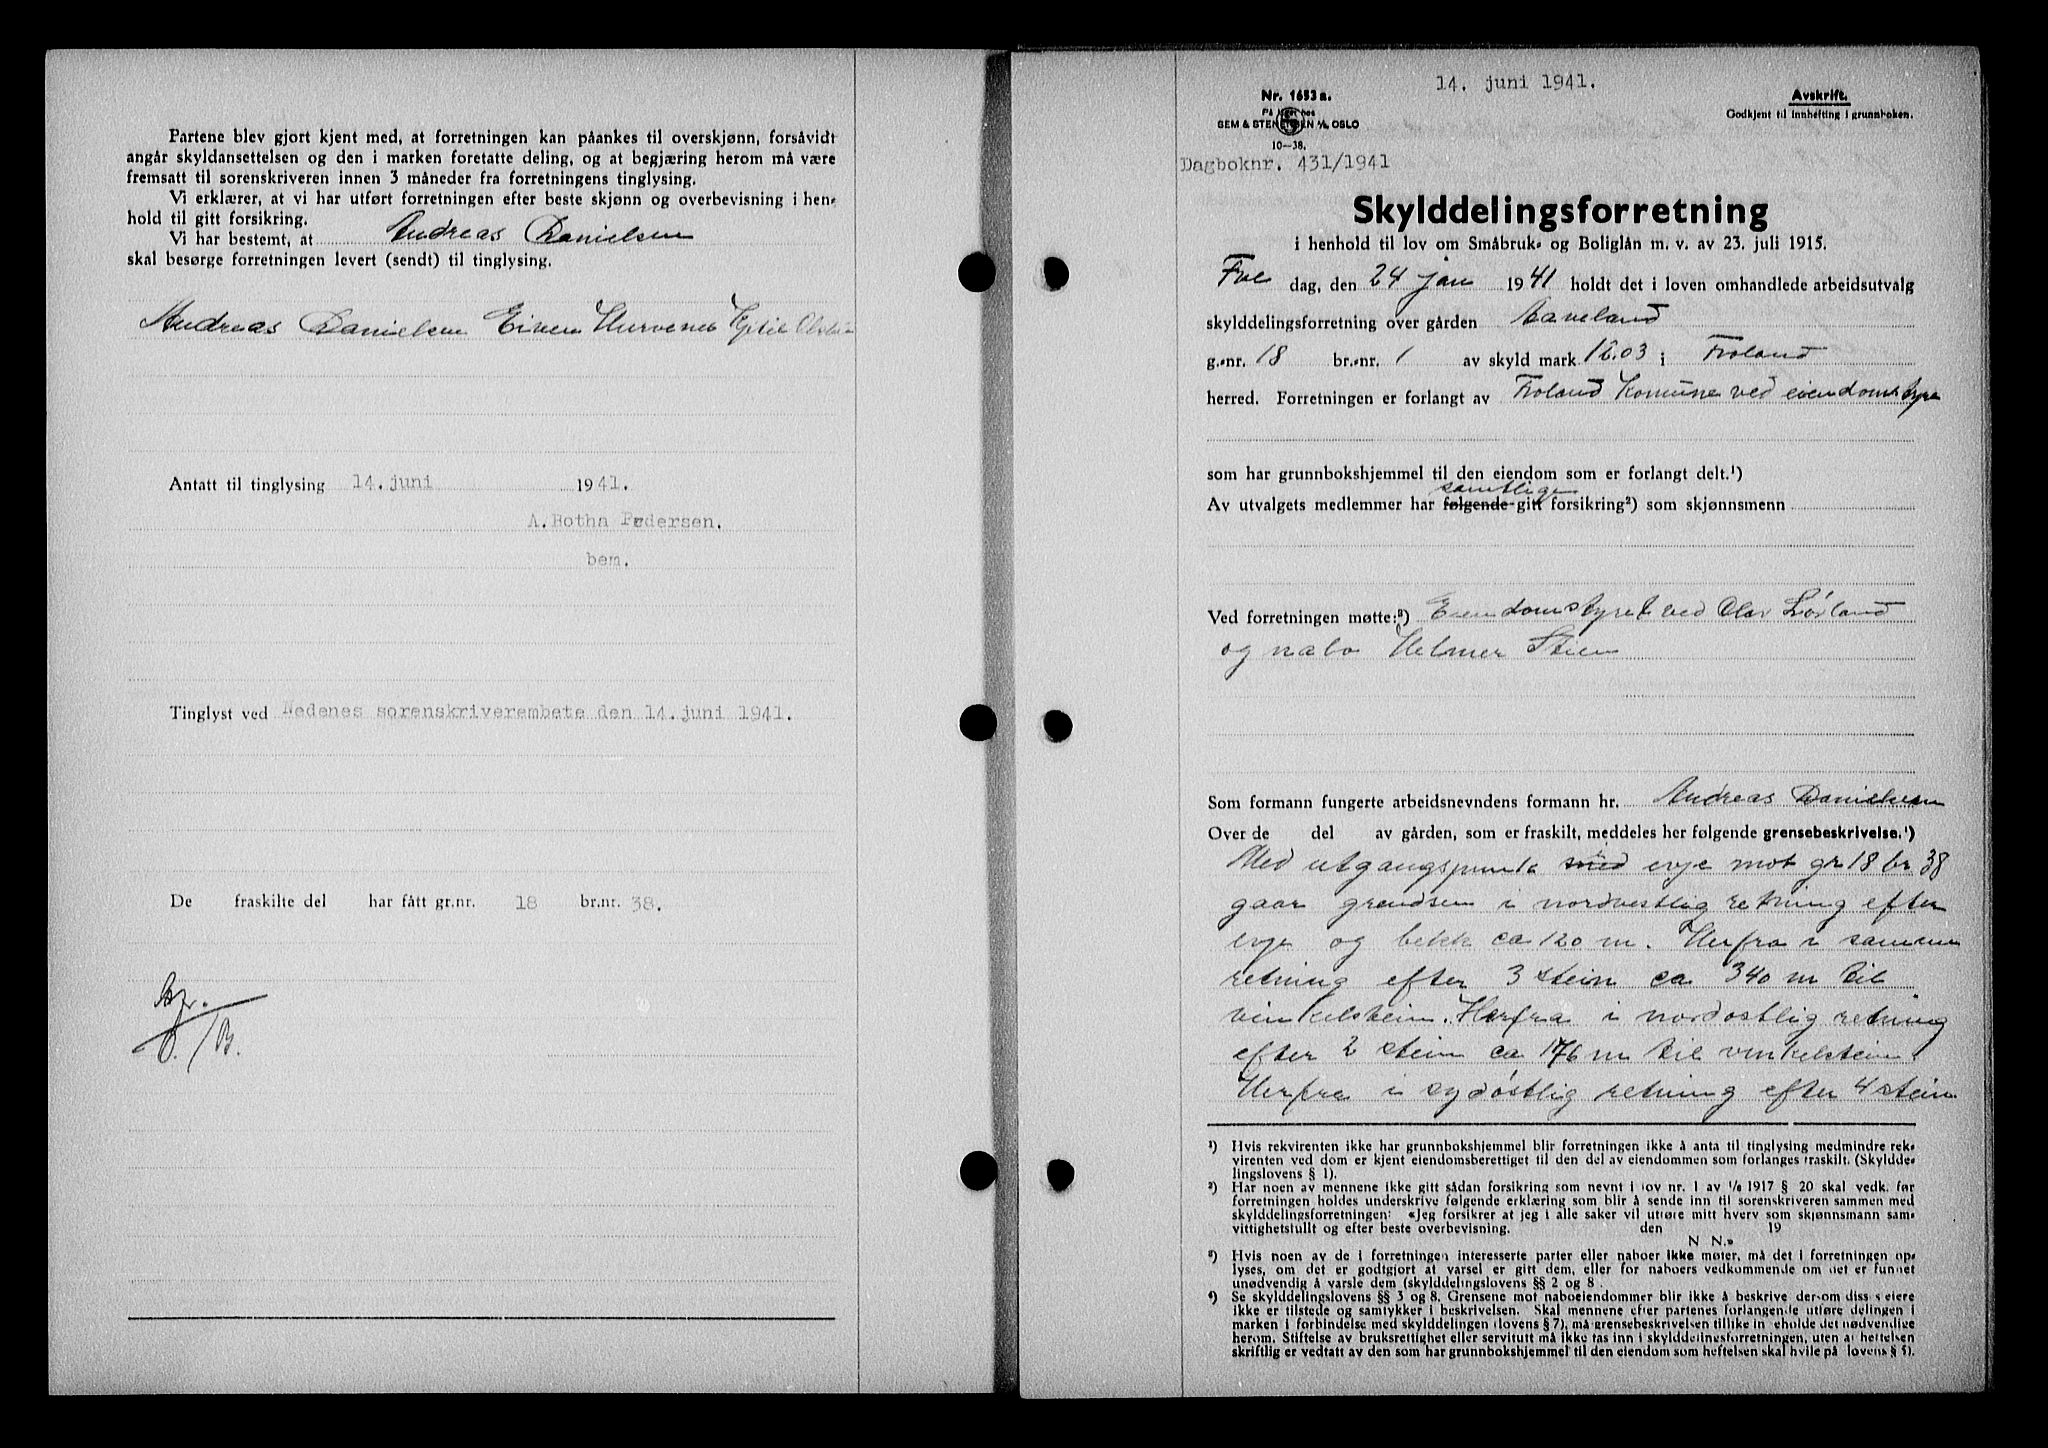 Partene blev gjort kjent med, at forretningen kan påankes til overskjønn, forsåvidt
angår skyldansettelsen og den i marken foretatte deling, og at begjæring herom må være
fremsatt til sorenskriveren innen 3 måneder fra forretningens tinglysing.
Vi erklærer, at vi har utført forretningen efter beste skjønn og overbevisning i hen-
hold til gitt forsikring.
Vi har bestemt, at Andreas Danielsen
skal besørge forretningen levert (sendt) til tinglysing.
Andreas Danielsen Eiven Hurvenes Kjetil
Antatt til tinglysing 14. juni 1941.
A. Botha Pedersen.
bem.
Tinglyst ved Nedenes sorenskriverembete den 14. juni 1941.
De fraskilte del har fått gr.nr. 18 br.nr. 38.
/B.
14. juni 1941.
Nr. 1653 a.
På lager hos
SEM & STENERSEN A/S, OSLO
10-38.
Avskrift.
Godkjent til innhefting i grunnboken.
Dagboknr. 431/1941
Skylddelingsforretning
i henhold til lov om Småbruk- og Boliglån m. v. av 23. juli 1915.
Fre dag, den 24 jan 1941 holdt det i loven omhandlede arbeidsutvalg
skylddelingsforretning over gården Aaveland
g.-nr. 18 br.-nr. 1 av skyld mark 12.03 i Froland
herred. Forretningen er forlangt av Froland Komune ved eiendomstyre
som har grunnbokshjemmel til den eiendom som er forlangt delt.¹)
samtlige
Av utvalgets medlemmer har følgende gitt forsikring²) som skjønnsmenn
Ved forretningen møtte:³) Eiendomstyret ved Olav Lørland
og nabo Helmer Stien
Som formann fungerte arbeidsnevndens formann hr. Andreas Danielsen
Over de del av gården, som er fraskilt, meddeles her følgende grensebeskrivelse.⁴)
Med utgangspunk med evje mot gr 18 br 38
gaar grendsen i nordvestlig retning efter
evje og bekk ca 120 m. Herfra i samme
retning efter 3 stein ca 340 m til
vinkelstein. Herfra i nordostlig retning
efter 2 stein ca 176 m til vinkelstein
Herfra i sydøstlig retning efter 4 stein
¹) Hvis rekvirenten ikke har grunnbokshjemmel blir forretningen ikke å anta til tinglysing medmindre rek-
virenten ved dom er kjent eiendomsberettiget til den del av eiendommen som forlanges fraskilt. (Skyldde-
lingslovens § 1).
²) Har noen av mennene ikke gitt sådan forsikring som nevnt i lov nr. 1 av 1/6 1917 § 20 skal vedk. før
forretningen holdes underskrive følgende erklæring som blir å sende inn til sorenskriveren sammen med
skylddelingsforretningen: «Jeg forsikrer at jeg i alle saker vil utføre mitt hverv som skjønnsmann sam-
vittighetsfullt og efter beste overbevisning. den 19
N N.»
³) Hvis noen av de i forretningen interesserte parter eller naboer ikke møter, må det i forretningen op-
lyses, om det er godtgjort at varsel er gitt dem, eller for naboers vedkommende om det er funnet
unødvendig å varsle dem (skylddelingslovens §§ 2 og 8.
⁴) Se skylddelingslovens §§ 3 og 8. Grensene mot naboeiendommer blir ikke å beskrive dersom disses eiere
ikke er tilstede og samtykker i beskrivelsen. Skal mennene efter partenes forlangende utføre delingen i
marken i forbindelse med skylddelingen (lovens § 7), må grensebeskrivelsen tillike inneholde det nødvendige
herom. Stiftelse av bruksrettighet eller servitutt må ikke tas inn i skylddelingsforretningen, uten at heftelsen
skriftlig er vedtatt av den som har grunnbokshjemmel til den eiendom som heftelsen skal hvile på (lovens § 5).